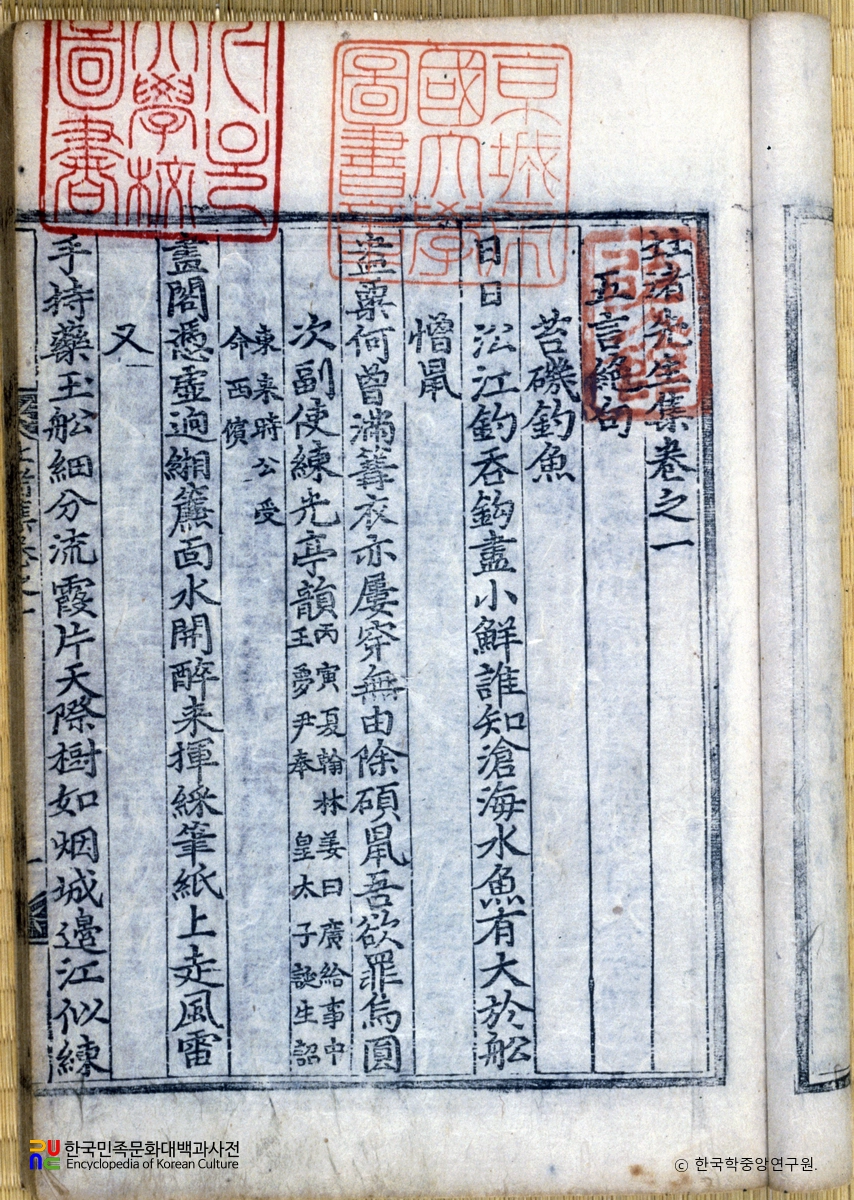 서울大學校圖書
京城帝國大學圖書章
北渚先生集卷之一
五言絕句
苔磯釣魚
日日沿江釣吞鈎盡小鮮誰知滄海水魚有大於舩
憎鼠
盎粟何曾滿篝衣亦屢穿無由除碩鼠吾欲罪烏圓
次副使練光亭韻
丙寅夏翰林姜曰廣給事中
王夢尹奉 皇太子誕生詔
東来時公受
命西儐
畫閣憑虛逈緗簾面水開醉来揮綵筆紙上走風雷
又
手持藥玉舩細分流霞片天際樹如烟城邊江似練
한국민족문화대백과사전
Encyclopedia of Korean Culture
ⓒ 한국학중앙연구원.